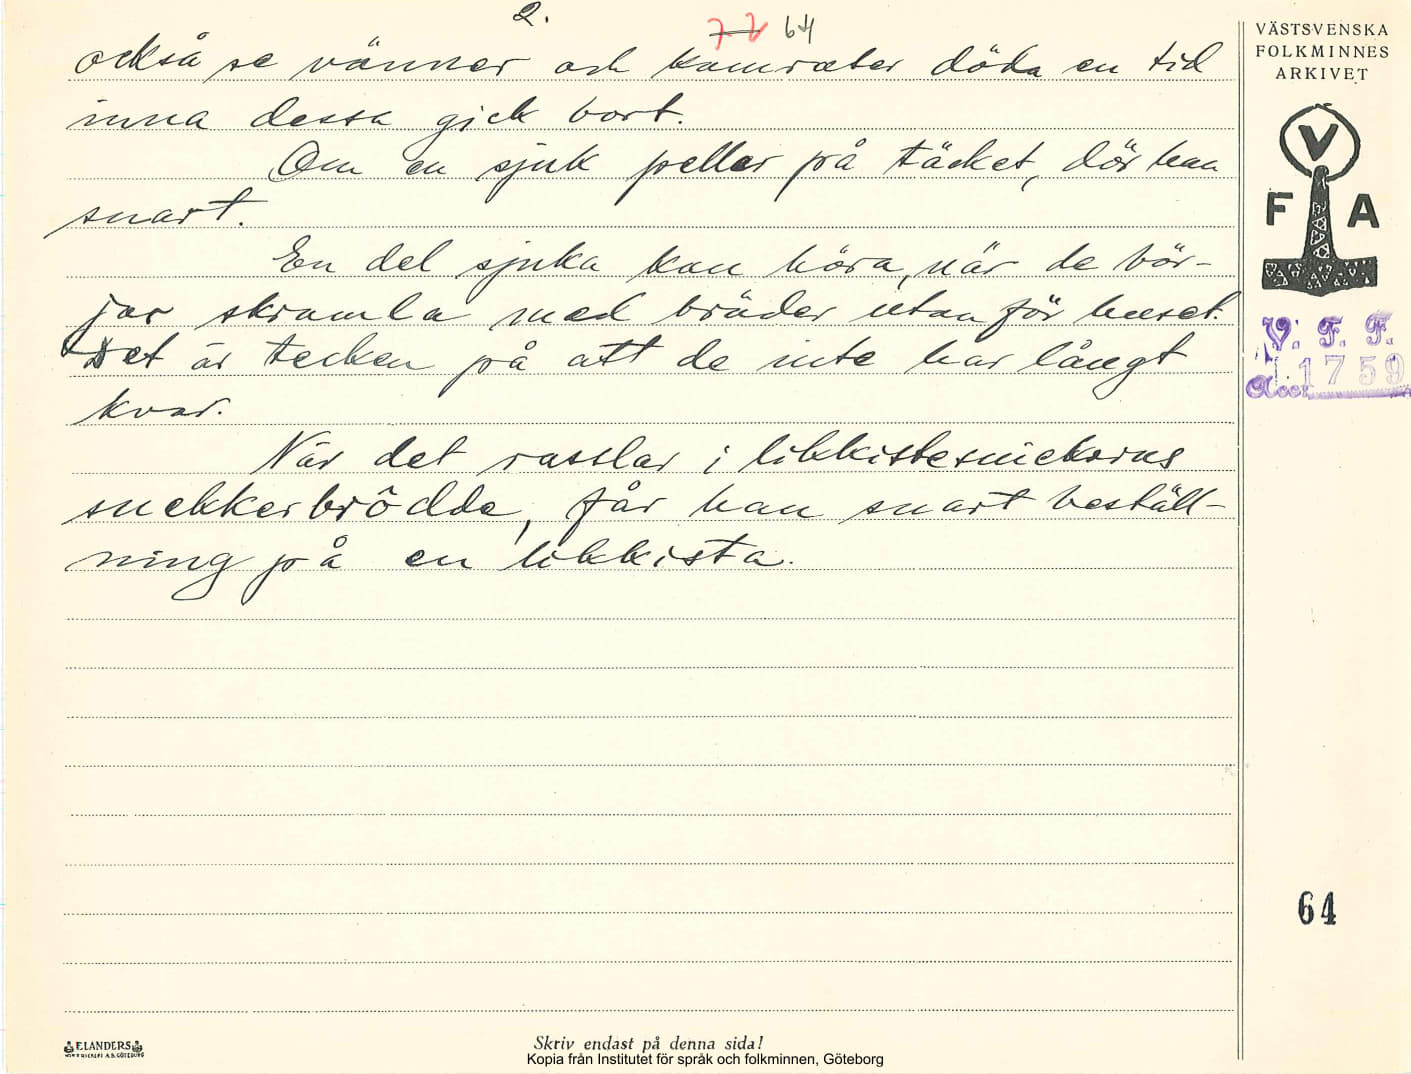 2.
7 7 64
också se vänner och kamrater döda en tid
inna dessa gick bort.
Om en sjuk peller på täcket, dör han
snart.
En del sjuka kan höra, när de bör-
jar skramla med bräder utanför huset.
Det är tecken på att de inte har långt
kvar.
När det rasslar i likkistesnickarns
snekkerbrôdde, får han snart beställ-
ning på en likkista.
VÄSTSVENSKA
FOLKMINNES
ARKIVET
V
F A
V. F. F.
Acc. 1759
64
ELANDERS
Skriv endast på denna sida!
Kopia från Institutet för språk och folkminnen, Göteborg